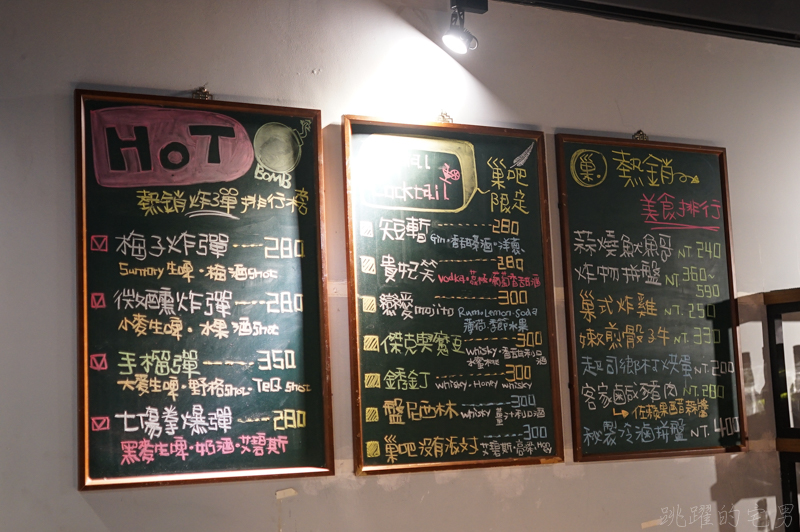 HOT
BOMB
熱銷炸彈排行榜
梅子炸彈 280
Suntory生啤·梅酒shot
微醺炸彈 280
小麥生啤·水果酒shot
手榴彈 350
大麥生啤·野格shot·TeQ.shot
七傷拳爆彈 280
黑麥生啤·奶酒·艾碧斯
cocktail
巢吧
限定
短暫 280
Gin·香甜酒·洋蔥
貴妃笑 280
Vodka·荔枝·葡萄香甜酒
戀愛mojito 300
Rum·Lemon·Soda
薄荷·季節水果
傑克與魔豆 300
whisky
銹釘 300
whiskey·Honey whisky
盤尼西林 300
whisky 薑汁利口酒
巢吧沒有派對 300
巢 熱銷
美食排行
蒜燒魷魚 NT 240
炸物拼盤 NT 360~590
巢式炸雞 NT 250
嫩煎骰子牛 NT 330
起司鄉村烘蛋 NT.200
客家鹹豬肉 NT 280
佐蘋果醋蒜醬
秘製冷滷拼盤 NT.400
跳躍的宅男